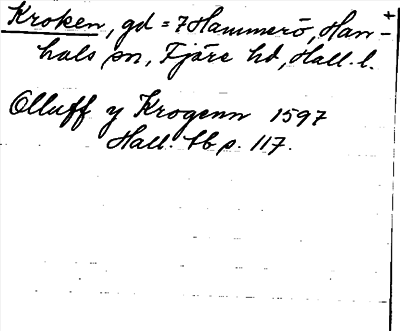 Kroken, gd = 7 Hammerö, Han-
hals sn, Fjäre hd, Hall. l.
Olluff y Krogenn 1597
Hall. tb p. 117.